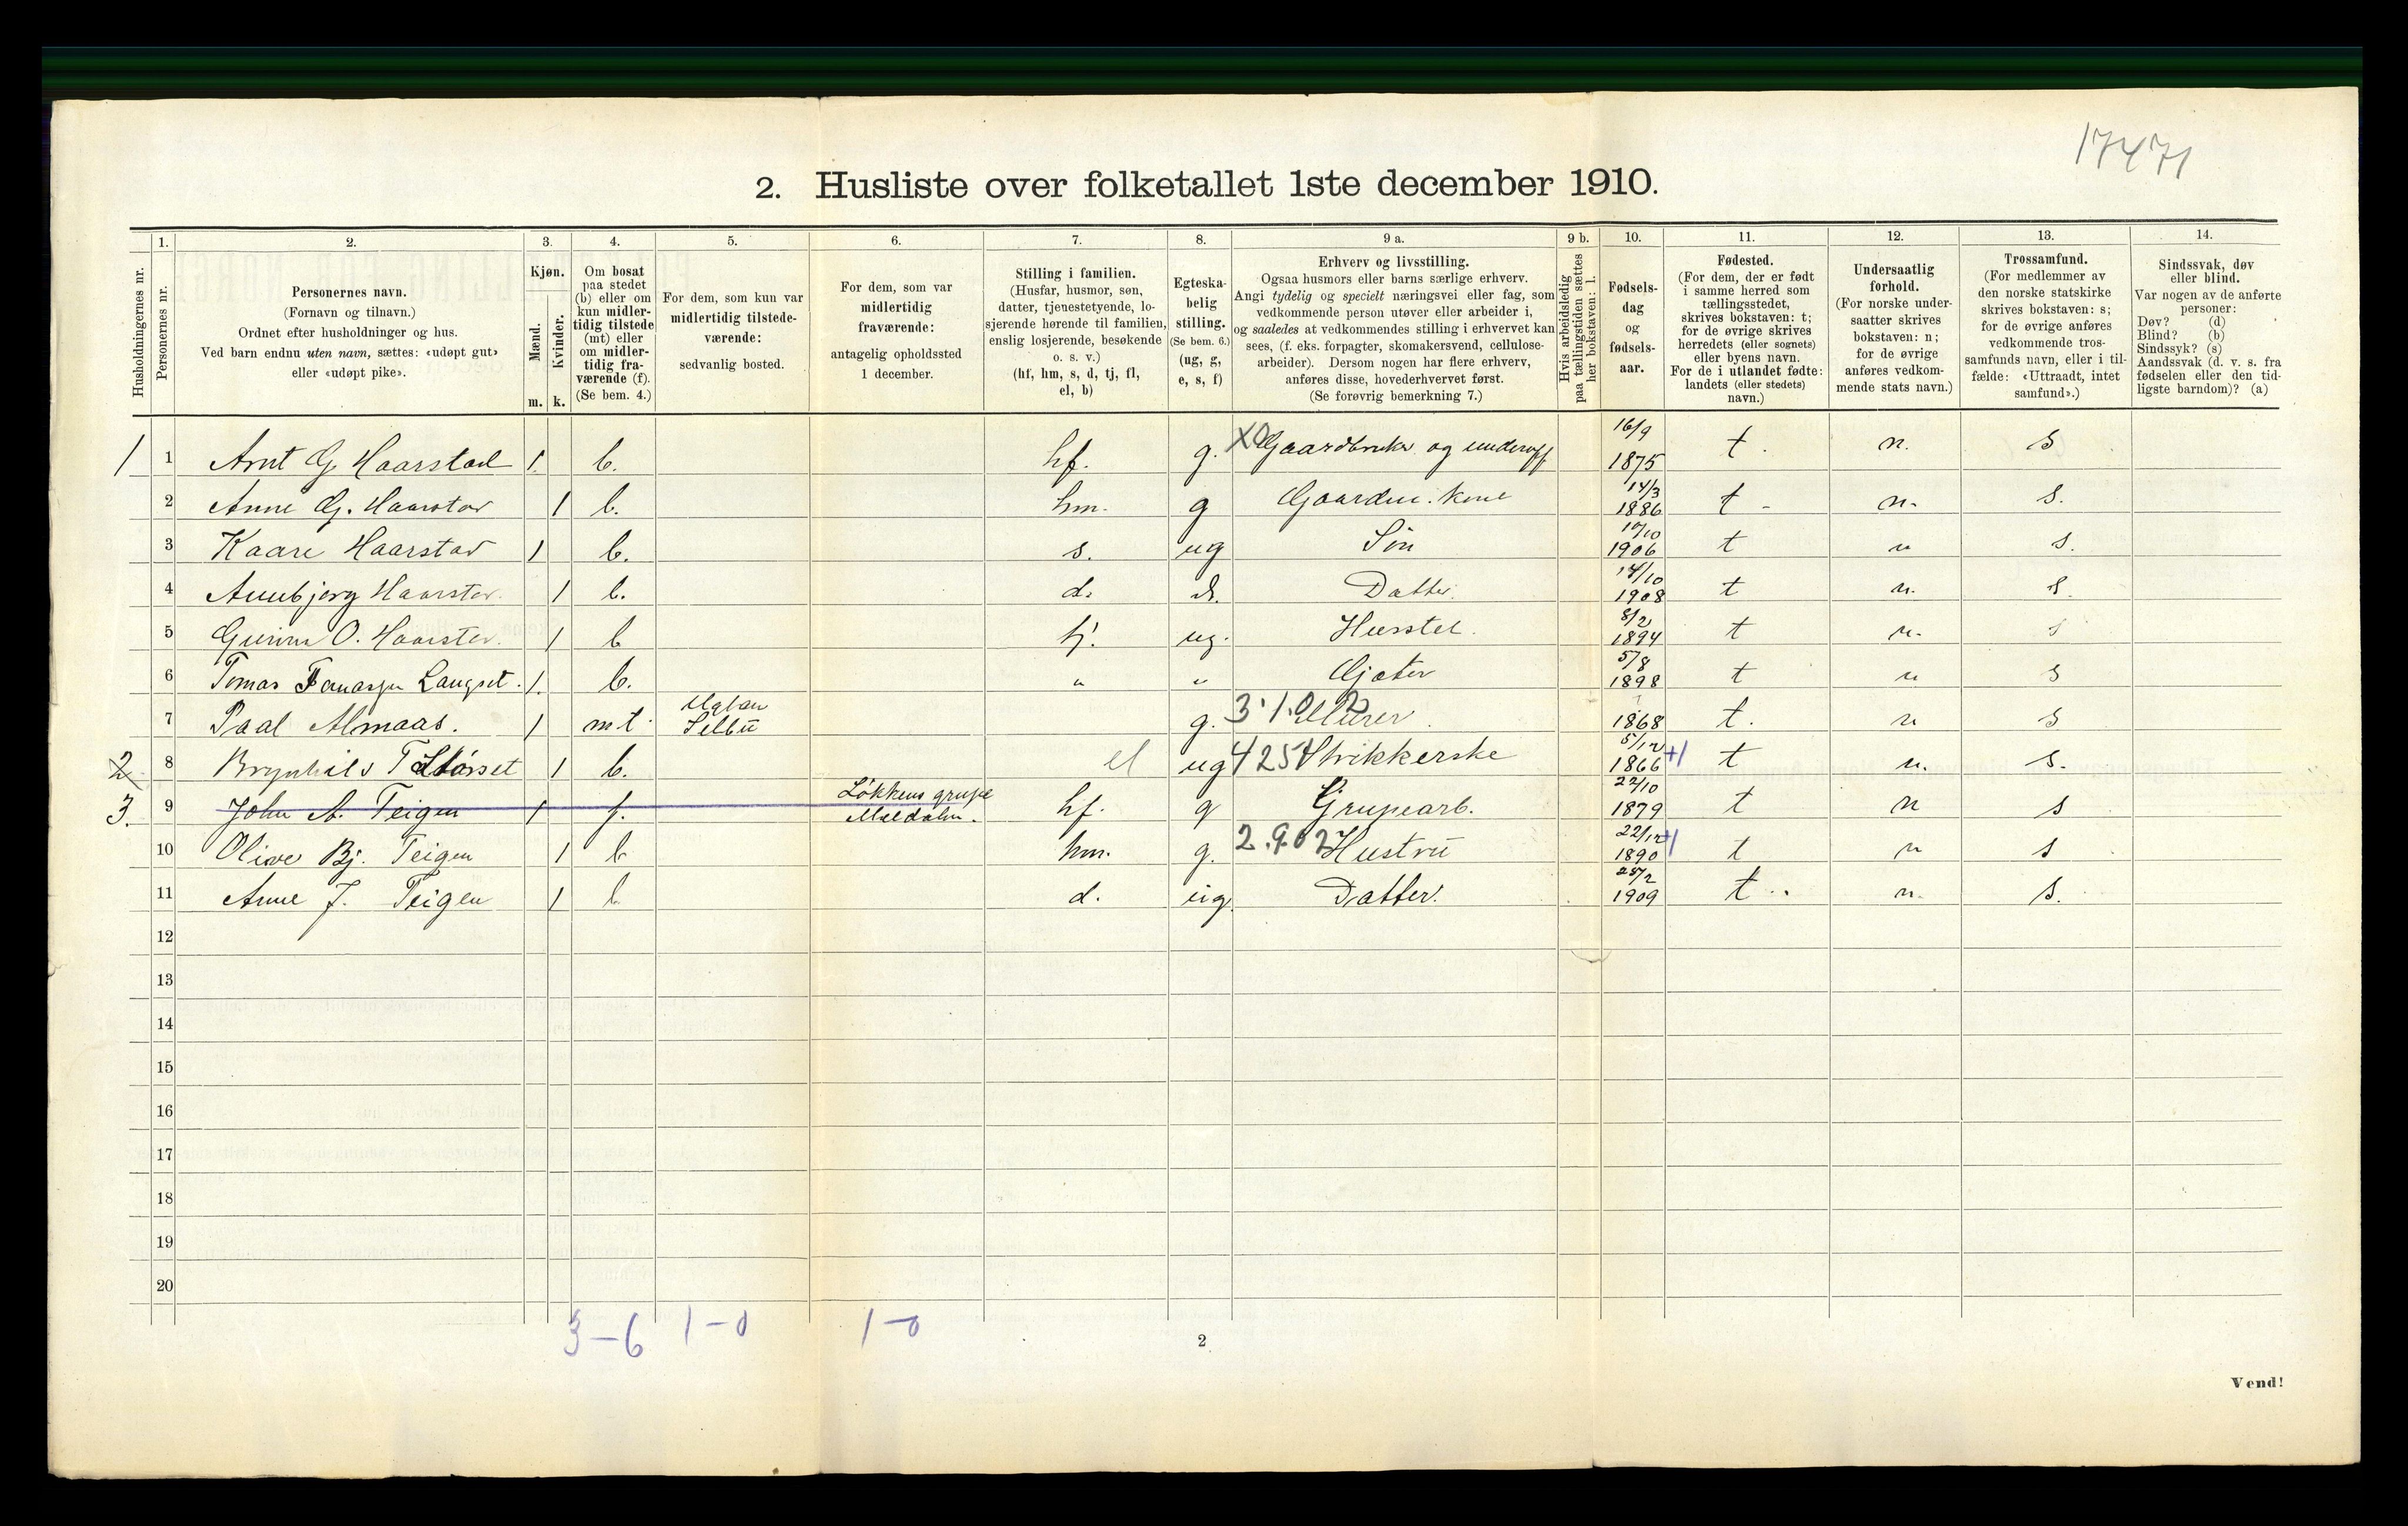 17471
2. Husliste over folketallet 1ste december 1910.
Husholdningernes nr.
1.
Personernes nr.
2.
Personernes navn.
(Fornavn og tilnavn.)
Ordnet efter husholdninger og hus.
Ved barn endnu uten navn, sættes: «udøpt gut»
eller «udøpt pike».
3.
Kjøn.
Mænd.
Kvinder.
m. k.
4.
Om bosat
paa stedet
(b) eller om
kun midler-
tidig tilstede
(mt) eller
om midler-
tidig fra-
værende (f).
(Se bem. 4.)
5.
For dem, som kun var
midlertidig tilstede-
værende:
sedvanlig bosted.
6.
For dem, som var
midlertidig
fraværende:
antagelig opholdssted
1 december.
7.
Stilling i familien.
(Husfar, husmor, søn,
datter, tjenestetyende, lo-
sjerende hørende til familien,
enslig losjerende, besøkende
o. s. v.)
(hf, hm, s, d, tj, fl,
el, b)
8.
Egteska-
belig
stilling.
(Se bem. 6.)
(ug, g,
e, s, f)
9 a.
Erhverv og livsstilling.
Ogsaa husmors eller barns særlige erhverv.
Angi tydelig og specielt næringsvei eller fag, som
vedkommende person utøver eller arbeider i,
og saaledes at vedkommendes stilling i erhvervet kan
sees, (f. eks. forpagter, skomakersvend, cellulose-
arbeider). Dersom nogen har flere erhverv,
anføres disse, hovederhvervet først.
(Se forøvrig bemerkning 7.)
9 b.
Hvis arbeidsledig
paa tællingstiden sættes
her bokstaven: l.
10.
Fødsels-
dag
og
fødsels-
aar.
11.
Fødested.
(For dem, der er født
i samme herred som
tællingsstedet,
skrives bokstaven: t;
for de øvrige skrives
herredets (eller sognets)
eller byens navn.
For de i utlandet fødte:
landets (eller stedets)
navn.)
12.
Undersaatlig
forhold.
(For norske under-
saatter skrives
bokstaven: n;
for de øvrige
anføres vedkom-
mende stats navn.)
13.
Trossamfund.
(For medlemmer av
den norske statskirke
skrives bokstaven: s;
for de øvrige anføres
vedkommende tros-
samfunds navn, eller i til-
fælde: «Uttraadt, intet
samfund».)
14.
Sindssvak, døv
eller blind.
Var nogen av de anførte
personer:
Døv? (d)
Blind? (b)
Sindssyk? (s)
Aandssvak (d. v. s. fra
fødselen eller den tid-
ligste barndom)? (a)
1 1 Arnt G. Haarstad 1. b. hf. g. Gaardbruker og underoff 16/9 1875 t. n. s
2 Anne G. Haarstad 1 b. hm. g Gaardm. kone 14/3 1886 t - n. s.
3 Kaare Haarstad 1 b. s. ug Sön 10/10 1906 t n s.
4 Annbjørg Haarstad. 1 b. d. Datter. 14/10 1908 t n. s.
5 O. Haarstad. 1 b tj. ug. Husstel. 8/2 1894 t n. s
6 Tomas Langset. 1. b. " " Gjæter 5/8 1898 t n s
7 Paal Almaas. 1 mt Selbu g. Murer. 1868 t. n s
2 8 Brynhild T 1 b. el ug 425 Strikkerske 5/12 1866 +1 t n. s.
3. 9 John A. Teigen 1 f. Løkkens grupe Meldalen. hf. g Grupearb. 22/10 1879 t n s
10 Olive Bj. Teigen 1 b hm. g. 2.902 Hustru 22/12 1890 +1 t n s
11 Anne J. Teigen 1 b d. ug. Datter. 28/2 1909 t n. s.
12
13
14
15
16
17
18
19
20
3 – 6 1 – 0 1 – 0
2
Vend!